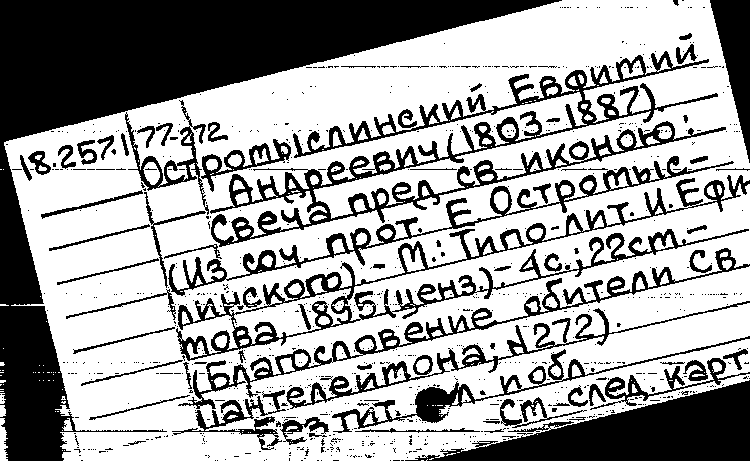 18.257.1 77-272
Остромыслинский, Евфитий
Андреевич (1803-1887).
Свеча пред св. иконою:
(Из соч. прот. Е. Остромыс-
линского). - М.: Типо-лит. И. Ефи
мова, 1895 (ценз.). - 4с.; 22см. -
(Благословение обители Св
Пантелеймона; №272).
Без тит. л. и обл.
См. след. карт.